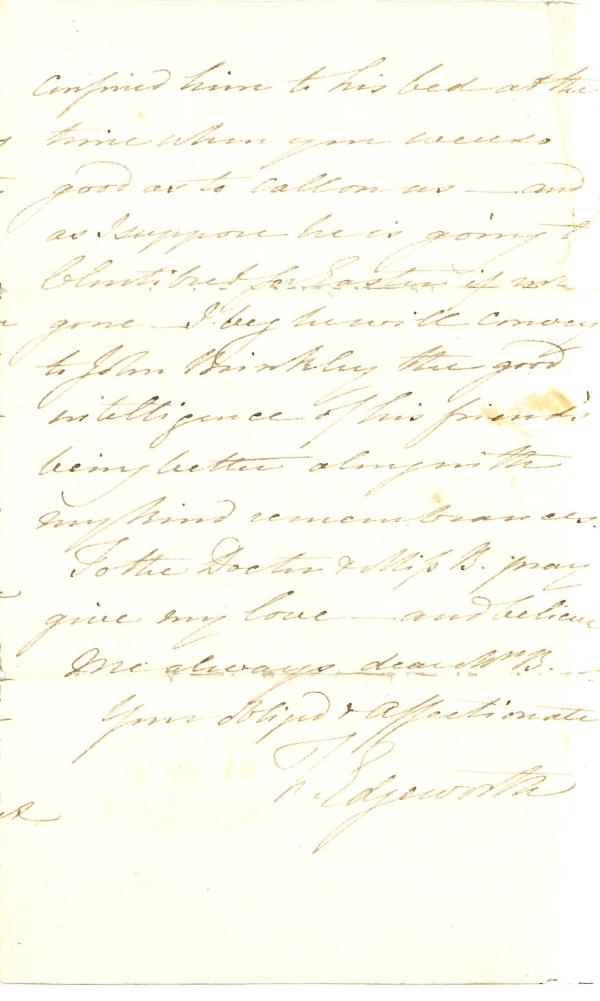 confined him to his bed at the
time when you were so
good as to call on us — and
as I suppose he is going to
for Easter if not
gone — I beg he will convey
to John Brinkley the good
intelligence of his friend's
being better along with
my kind remembrances.
To the Doctor & Miss B. pray
give my love — and believe
me always dear Mrs B. —
Your obliged & affectionate
F. Edgeworth